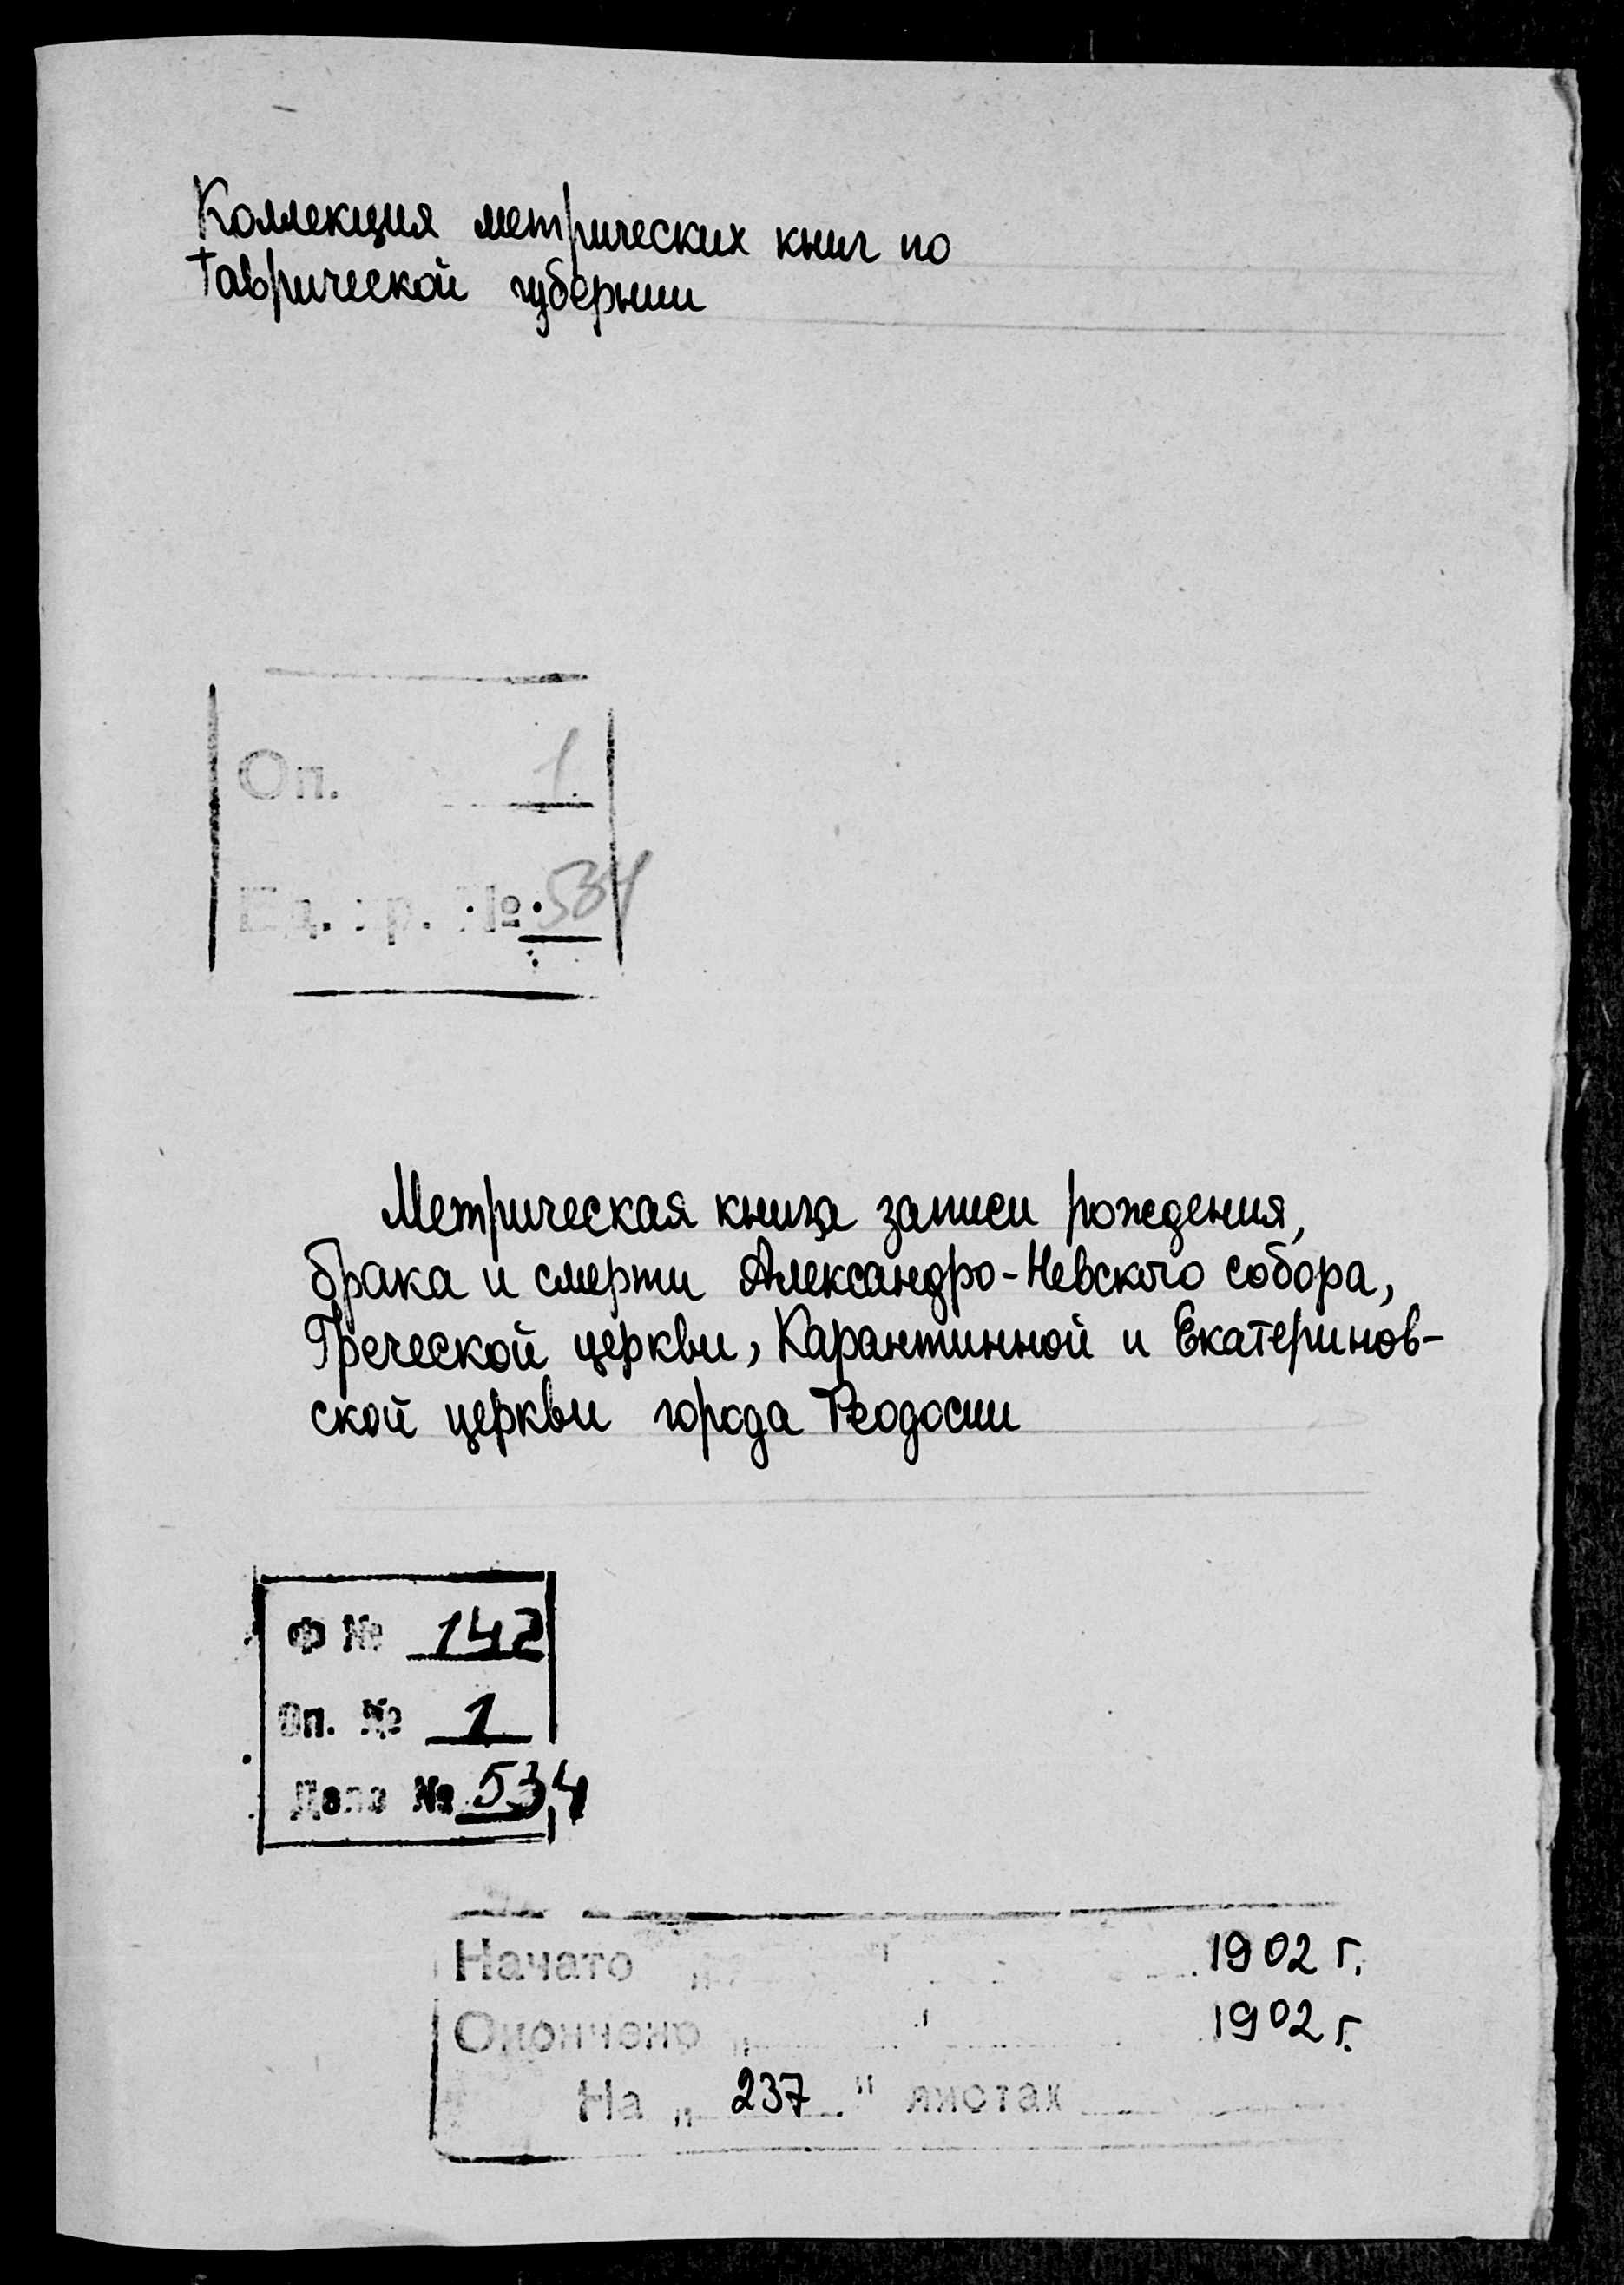 Коллекция метрических книг по
Таврической губернии
Оп. 1
Ед. хр. № 534
Метрическая книга записи рождения,
брака и смерти Александро-Невского собора,
Греческой церкви, Карантинной и Екатеринов-
ской церкви города Феодосии
Ф № 142
Оп. № 1
Дело № 534
Начато " " 1902 г.
Окончено " " 1902 г.
На " 237 " листах